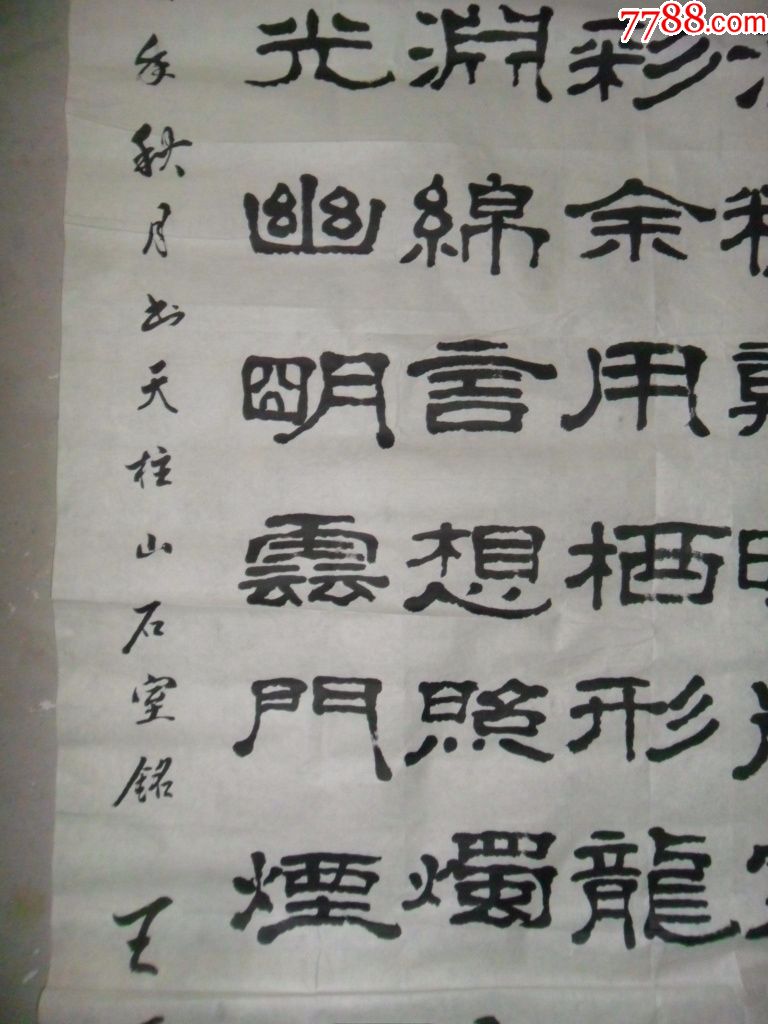 7788.com
彩余用栖形龍
淵綿言想照燭
光幽明雲門煙
年秋月書天柱山石室銘
王